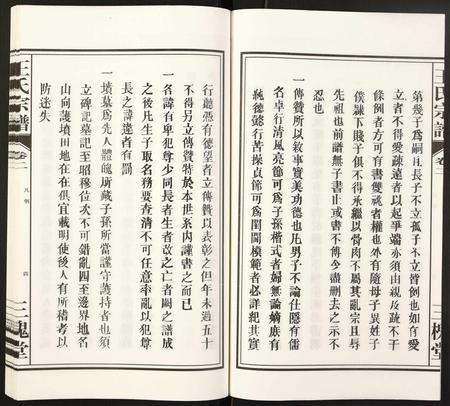 王氏宗譜
卷一
三槐堂
第幾子為嗣凡長子不立孤子不立皆例也如有愛
立者不得愛疎遠者以起爭端亦須由親及疏不干
條例者方可有書雙祧者權也外有隨母子異姓子
僕隸下賤子俱不得承繼以骨肉不屬其亂宗且辱
先祖也前譜無子書止或書不傳今盡刪去之示不
忍也
一傳贊所以敘事實美功德也凡男子不論仕隱有儒
名卓行清風亮節可為子孫楷式者婦無論嫡庶有
純德懿行苦操貞節可為閨閫模範者必詳紀其實
王氏宗譜
卷一
凡例
四
三槐堂
行聽憑有德望者立傳贊以表彰之但年未過五十
不得另立傳贊特於本世系內謹書之而已
一名諱有卑犯尊少同長者生者改之亡者闕之譜成
之後凡生子取名務要查清不可任意率亂以犯尊
長之諱違者有罰
一墳墓為先人體魄所藏子孫所當謹守護持者也須
立碑記墓記至昭穆位次不可錯亂四至邊界地名
山向護墳田地在在俱宜載明使後人有所稽考以
防迷失